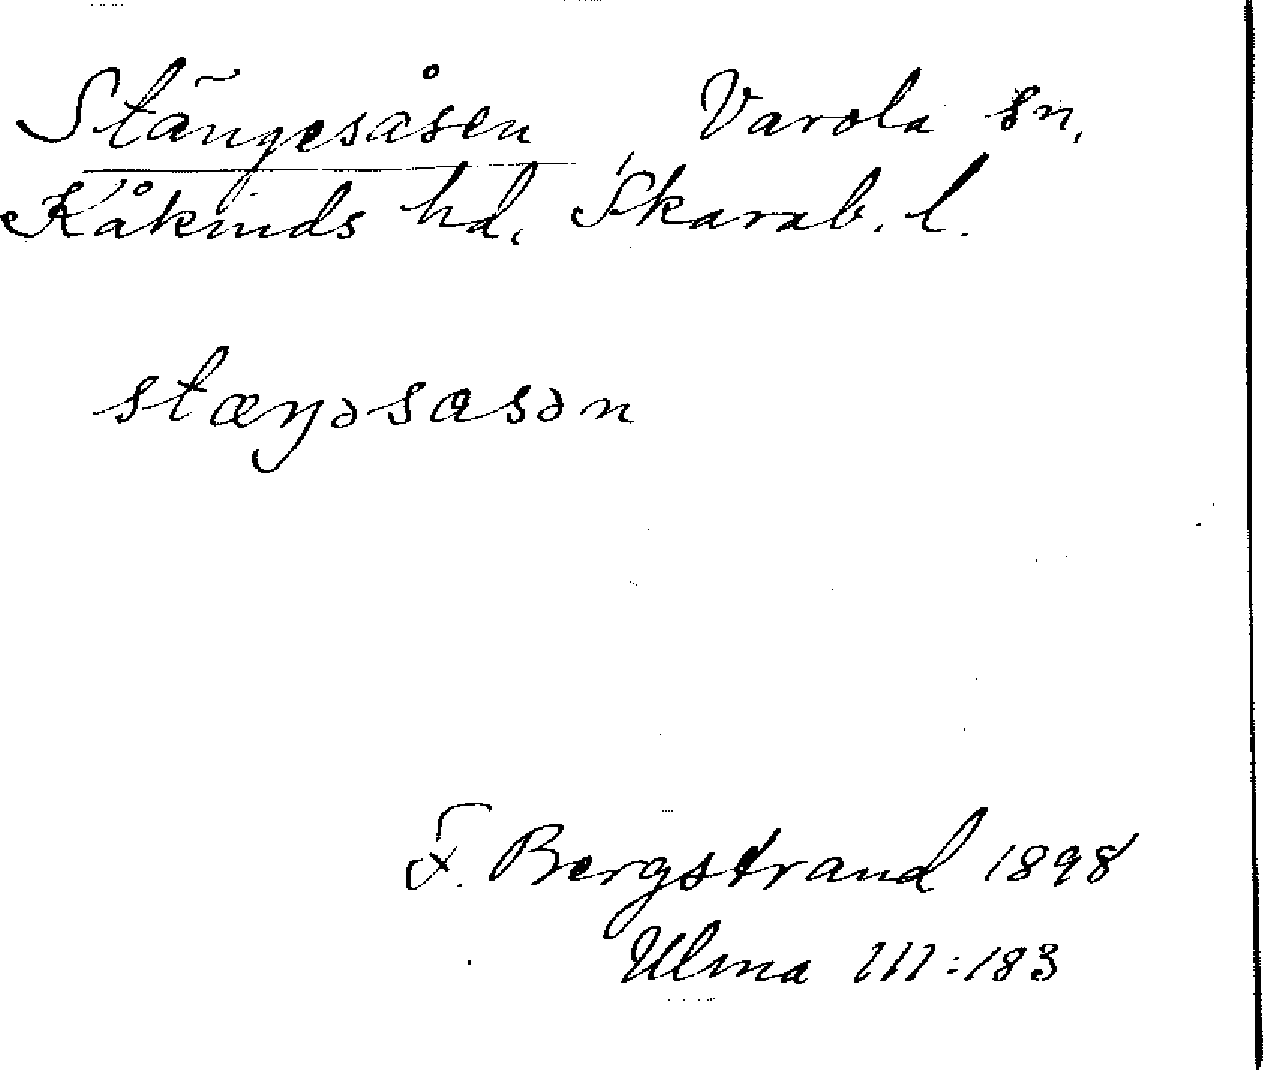 Stängesåsen Varola sn,
Kåkinds hd, Skarab. l.
stæŋəsɑsən
F. Bergstrand 1898
Ulma 111:183